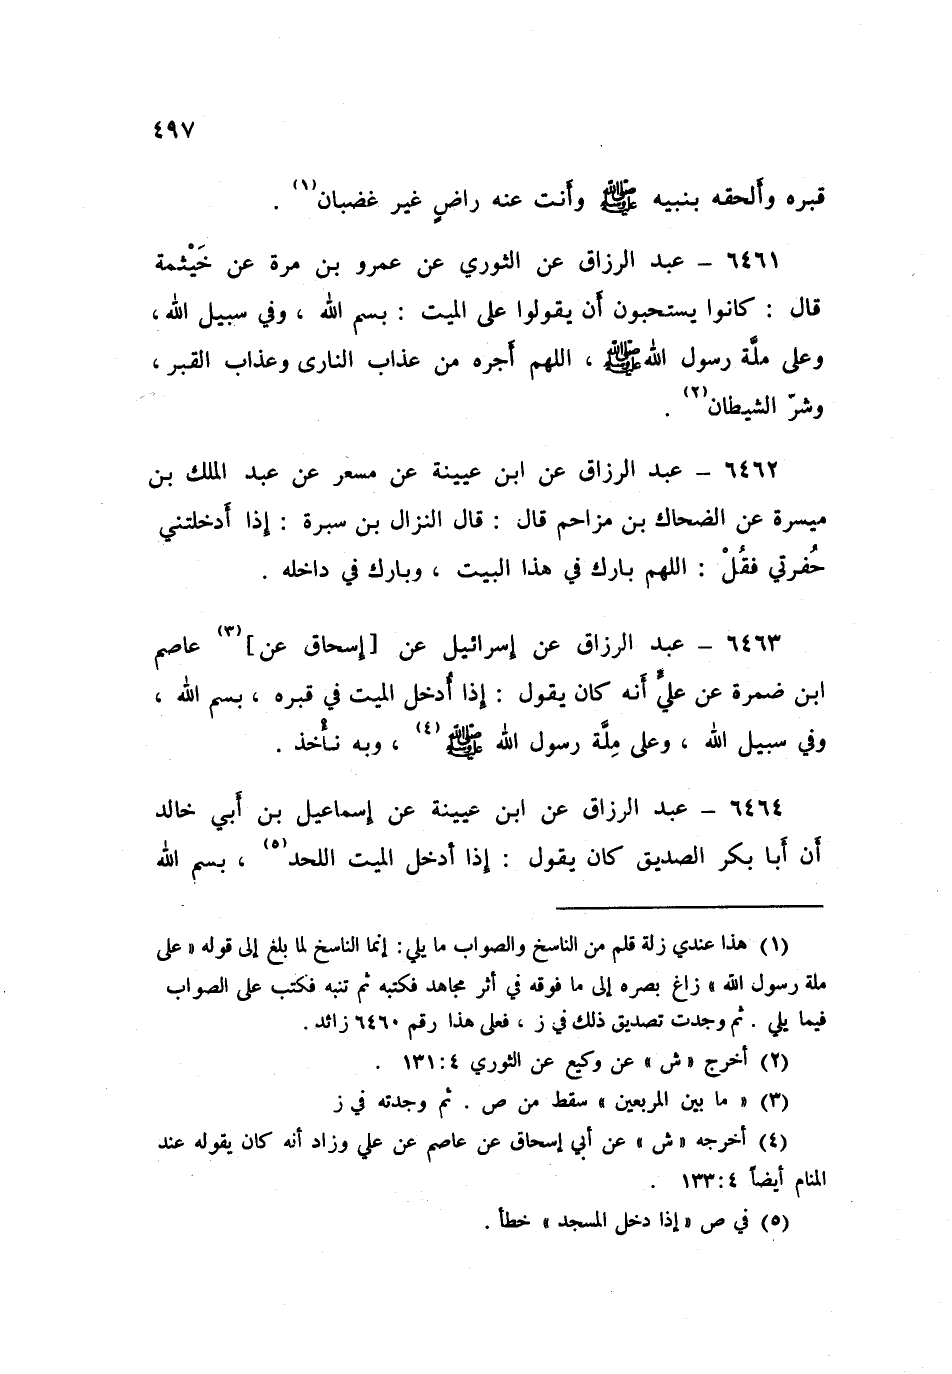 ٤٩٧
قبره وألحقه بنبيه ﷺ وأنت عنه راضٍ غير غضبان(١) .
٦٤٦١ – عبد الرزاق عن الثوري عن عمرو بن مرة عن خَيْثمة
قال : كانوا يستحبون أن يقولوا على الميت : بسم الله ، وفي سبيل الله ،
وعلى ملَّة رسول الله ﷺ ، اللهم أجره من عذاب النارى وعذاب القبر ،
وشرّ الشيطان(٢) .
٦٤٦٢ – عبد الرزاق عن ابن عيينة عن مسعر عن عبد الملك بن
ميسرة عن الضحاك بن مزاحم قال : قال النزال بن سبرة : إذا أدخلتني
حُفرتي فقُلْ : اللهم بارك في هذا البيت ، وبارك في داخله .
٦٤٦٣ – عبد الرزاق عن إسرائيل عن [إسحاق عن](٣) عاصم
ابن ضمرة عن عليٍّ أنه كان يقول : إذا أُدخل الميت في قبره ، بسم الله ،
وفي سبيل الله ، وعلى مِلَّة رسول الله ﷺ(٤) ، وبه نأخذ .
٦٤٦٤ – عبد الرزاق عن ابن عيينة عن إسماعيل بن أبي خالد
أن أبا بكر الصديق كان يقول : إذا أدخل الميت اللحد(٥) ، بسم الله
(١) هذا عندي زلة قلم من الناسخ والصواب ما يلي: إنما الناسخ لما بلغ إلى قوله « على
ملة رسول الله » زاغ بصره إلى ما فوقه في أثر مجاهد فكتبه ثم تنبه فكتب على الصواب
فيما يلي . ثم وجدت تصديق ذلك في ز ، فعلى هذا رقم ٦٤٦٠ زائد .
(٢) أخرج « ش » عن وكيع عن الثوري ٤ : ١٣١ .
(٣) « ما بين المربعين » سقط من ص . ثم وجدته في ز
(٤) أخرجه « ش » عن أبي إسحاق عن عاصم عن علي وزاد أنه كان يقوله عند
المنام أيضاً ٤ : ١٣٣ .
(٥) في ص « إذا دخل المسجد » خطأ .